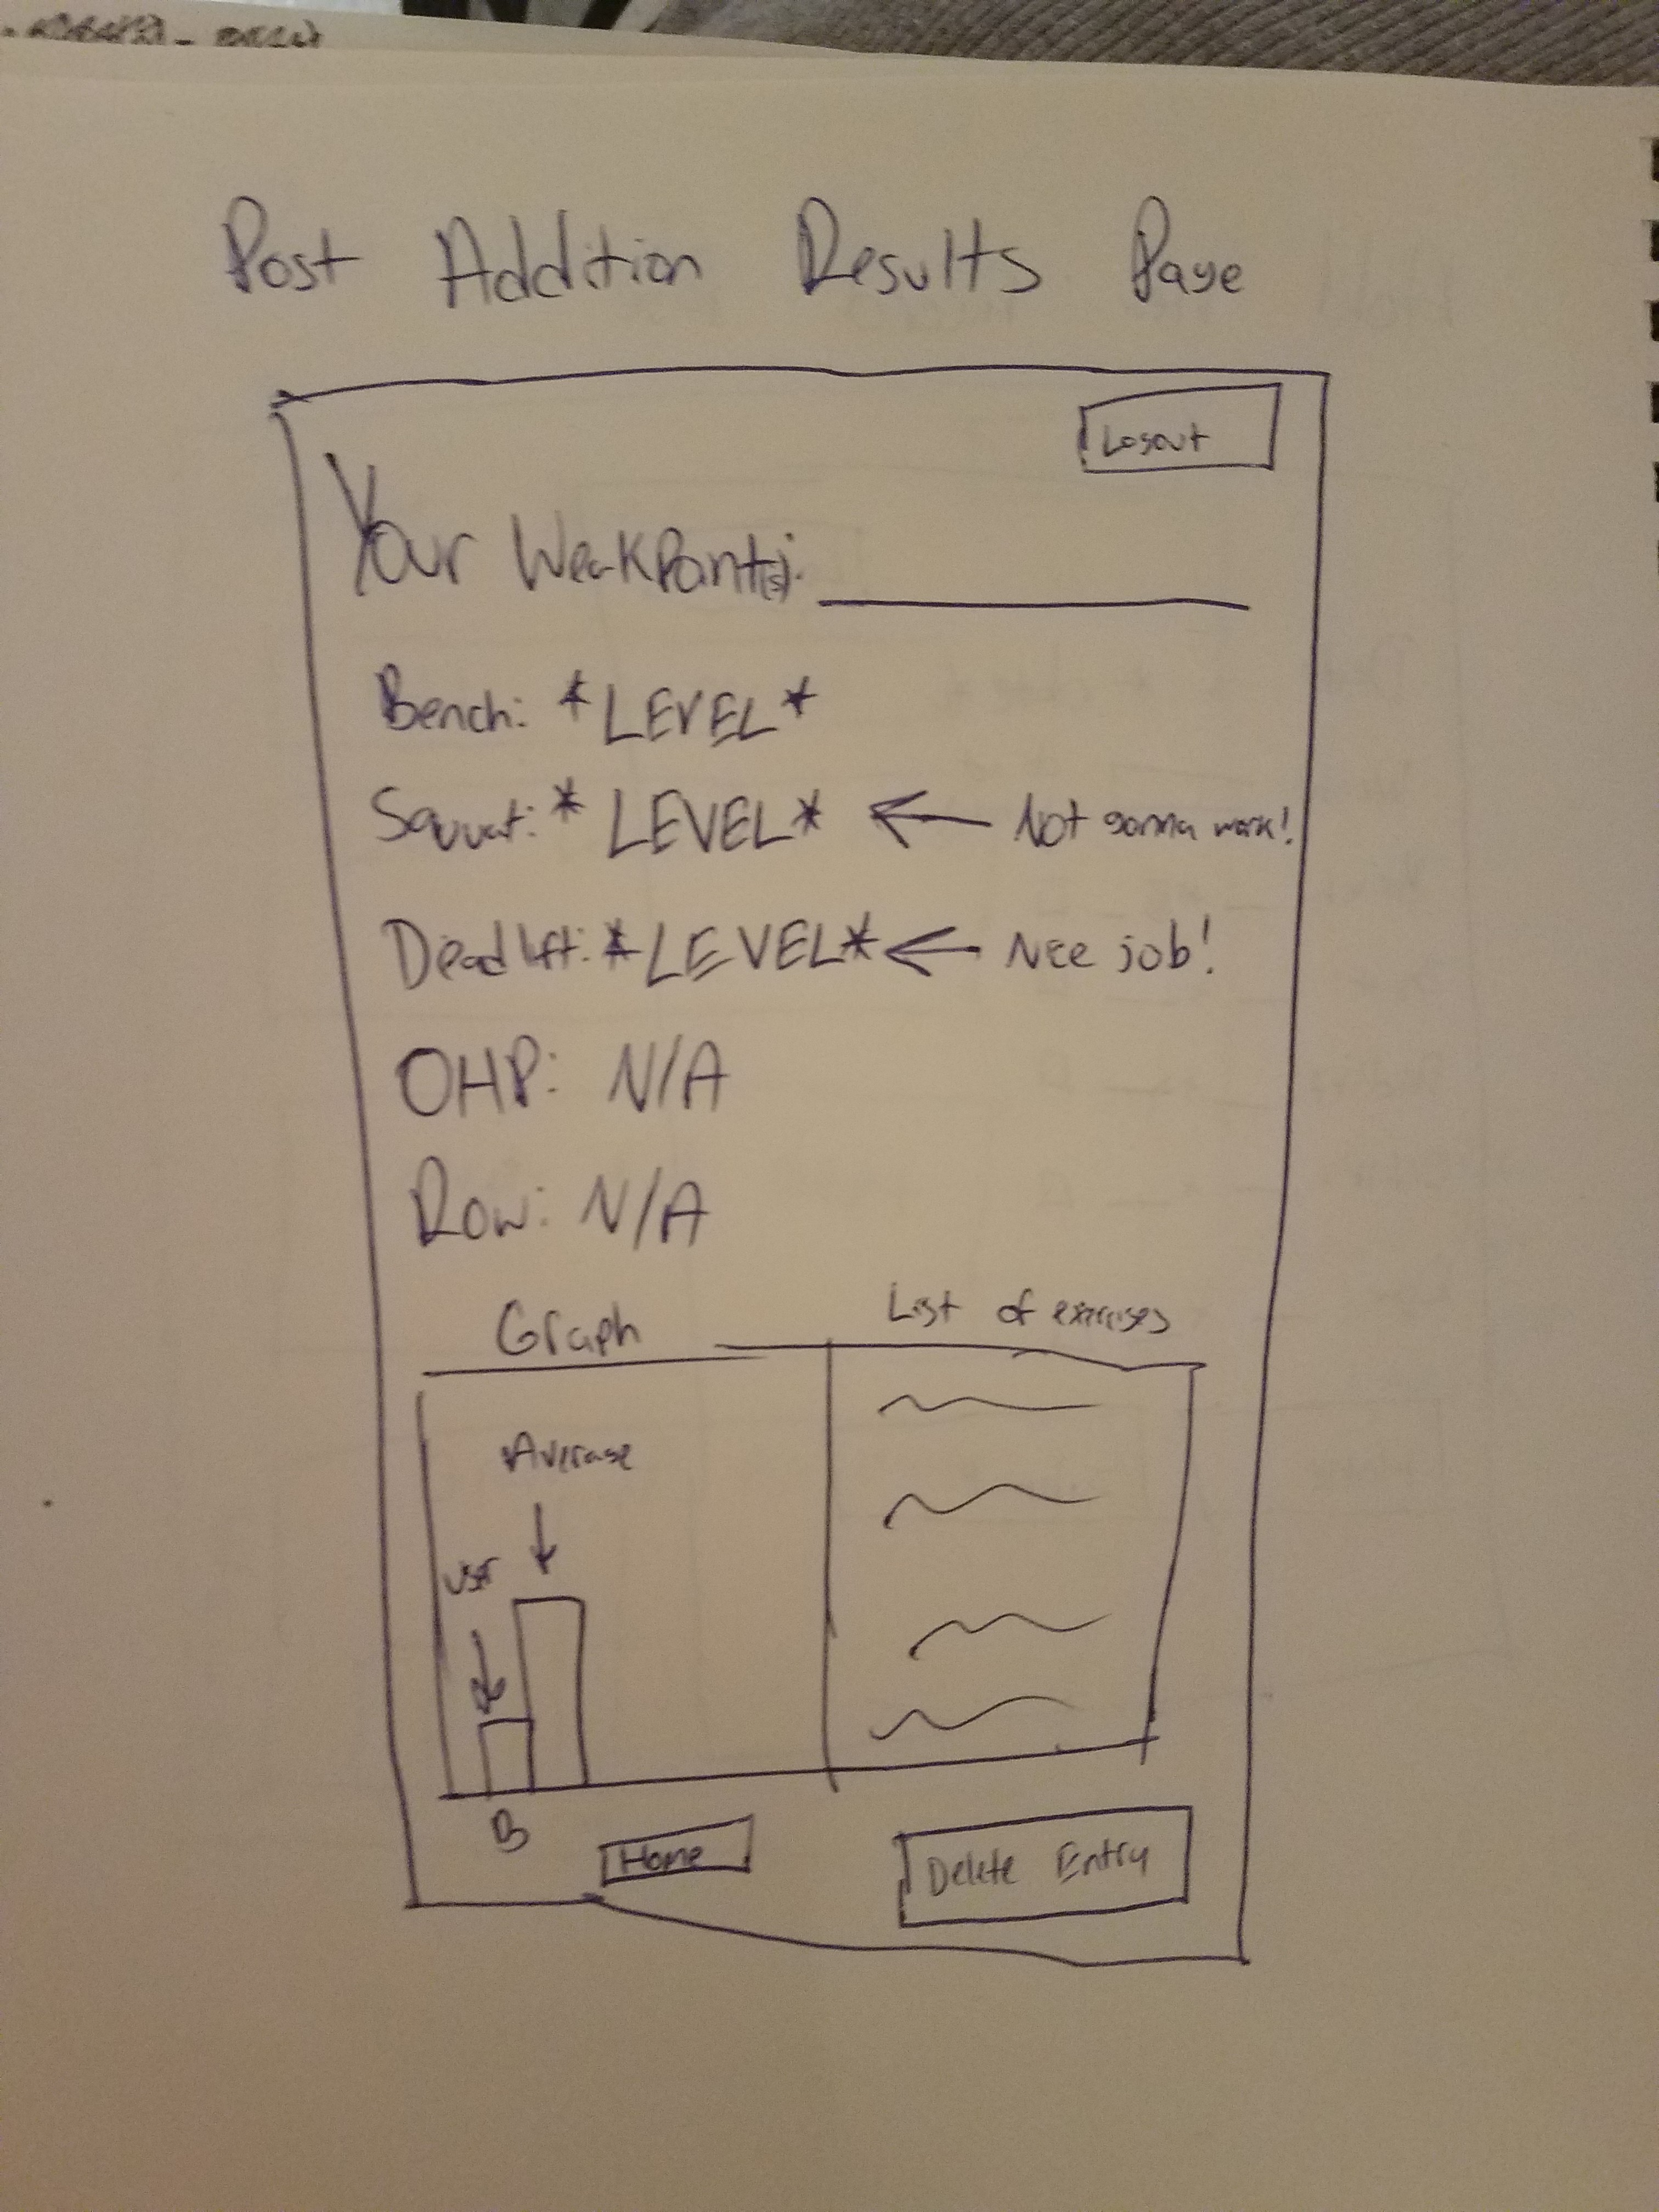 Post Addition Results Page
Logout
Your WeakPoint(s):
Bench: *LEVEL*
Squat: *LEVEL* ← Not gonna work!
Deadlift: *LEVEL* ← Nice job!
OHP: N/A
Row: N/A
Graph
List of exercises
Average
User
B
Home
Delete Entry